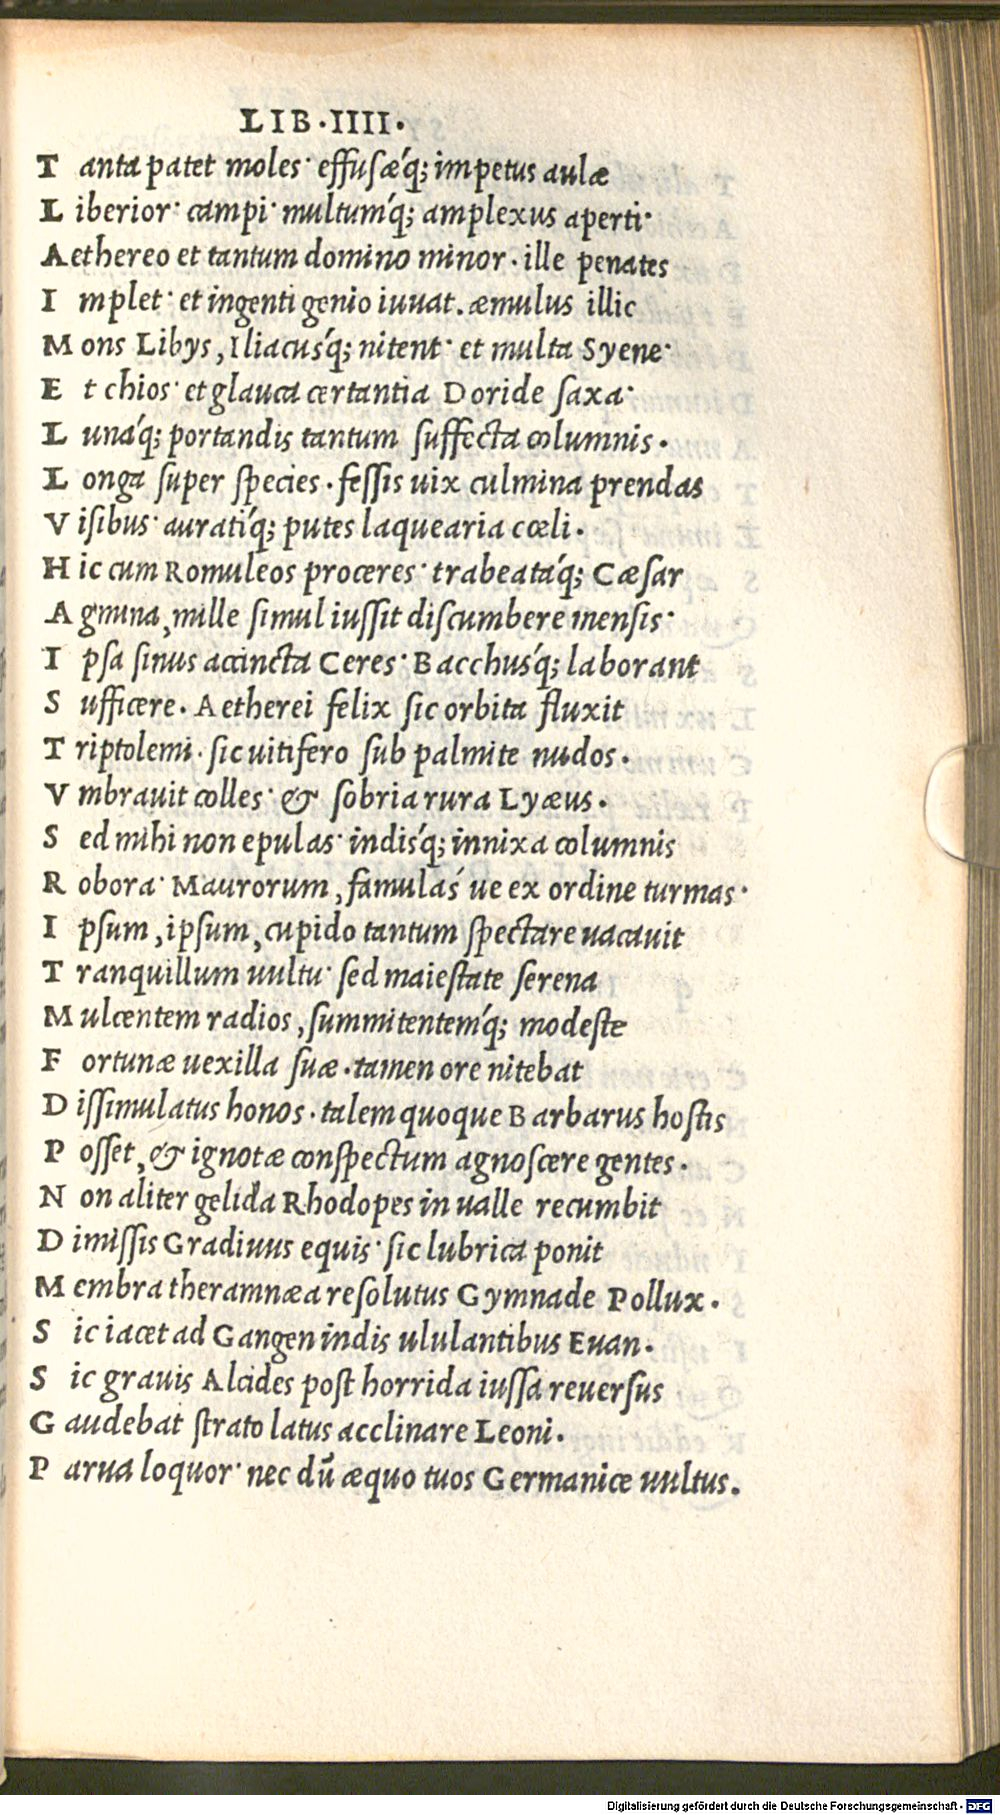 LIB·IIII·
T anta patet moles· effusæq́; impetus aulæ
L iberior· campi· multumq́; amplexus aperti·
Aethereo et tantum domino minor· ille penates
I mplet· et ingenti genio iuuat. æmulus illic
M ons Libys, Iliacusq́; nitent· et multa Syene·
E t chios· et glauca certantia Doride saxa·
L unáq; portandis tantum suffecta columnis.
L onga super species. fessis uix culmina prendas
V isibus· auratiq́; putes laquearia cœli.
H ic cum Romuleos proceres· trabeatáq; Cæsar
A gmina, mille simul iussit discumbere mensis·
I psa sinus accincta Ceres· Bacchusq́; laborant
S ufficere. Aetherei felix sic orbita fluxit
T riptolemi. sic uitifero sub palmite nudos.
V mbrauit colles· & sobria rura Lyæus.
S ed mihi non epulas· indisq́; innixa columnis
R obora· Maurorum, famulaś ue ex ordine turmas·
I psum, ipsum, cupido tantum spectare uacauit
T ranquillum uultu· sed maiestate serena
M ulcentem radios, summitentemq́; modeste
F ortunæ uexilla suæ. tamen ore nitebat
D issimulatus honos. talem quoque Barbarus hostis
P osset, & ignotæ conspectum agnoscere gentes.
N on aliter gelida Rhodopes in ualle recumbit
D imissis Gradiuus equis· sic lubrica ponit
M embra theramnæa resolutus Gymnade Pollux.
S ic iacet ad Gangen indis ululantibus Euan.
S ic grauis Alcides post horrida iussa reuersus
G audebat strato latus acclinare Leoni.
P arua loquor· nec dū æquo tuos Germanice uultus.
Digitalisierung gefördert durch die Deutsche Forschungsgemeinschaft - DFG